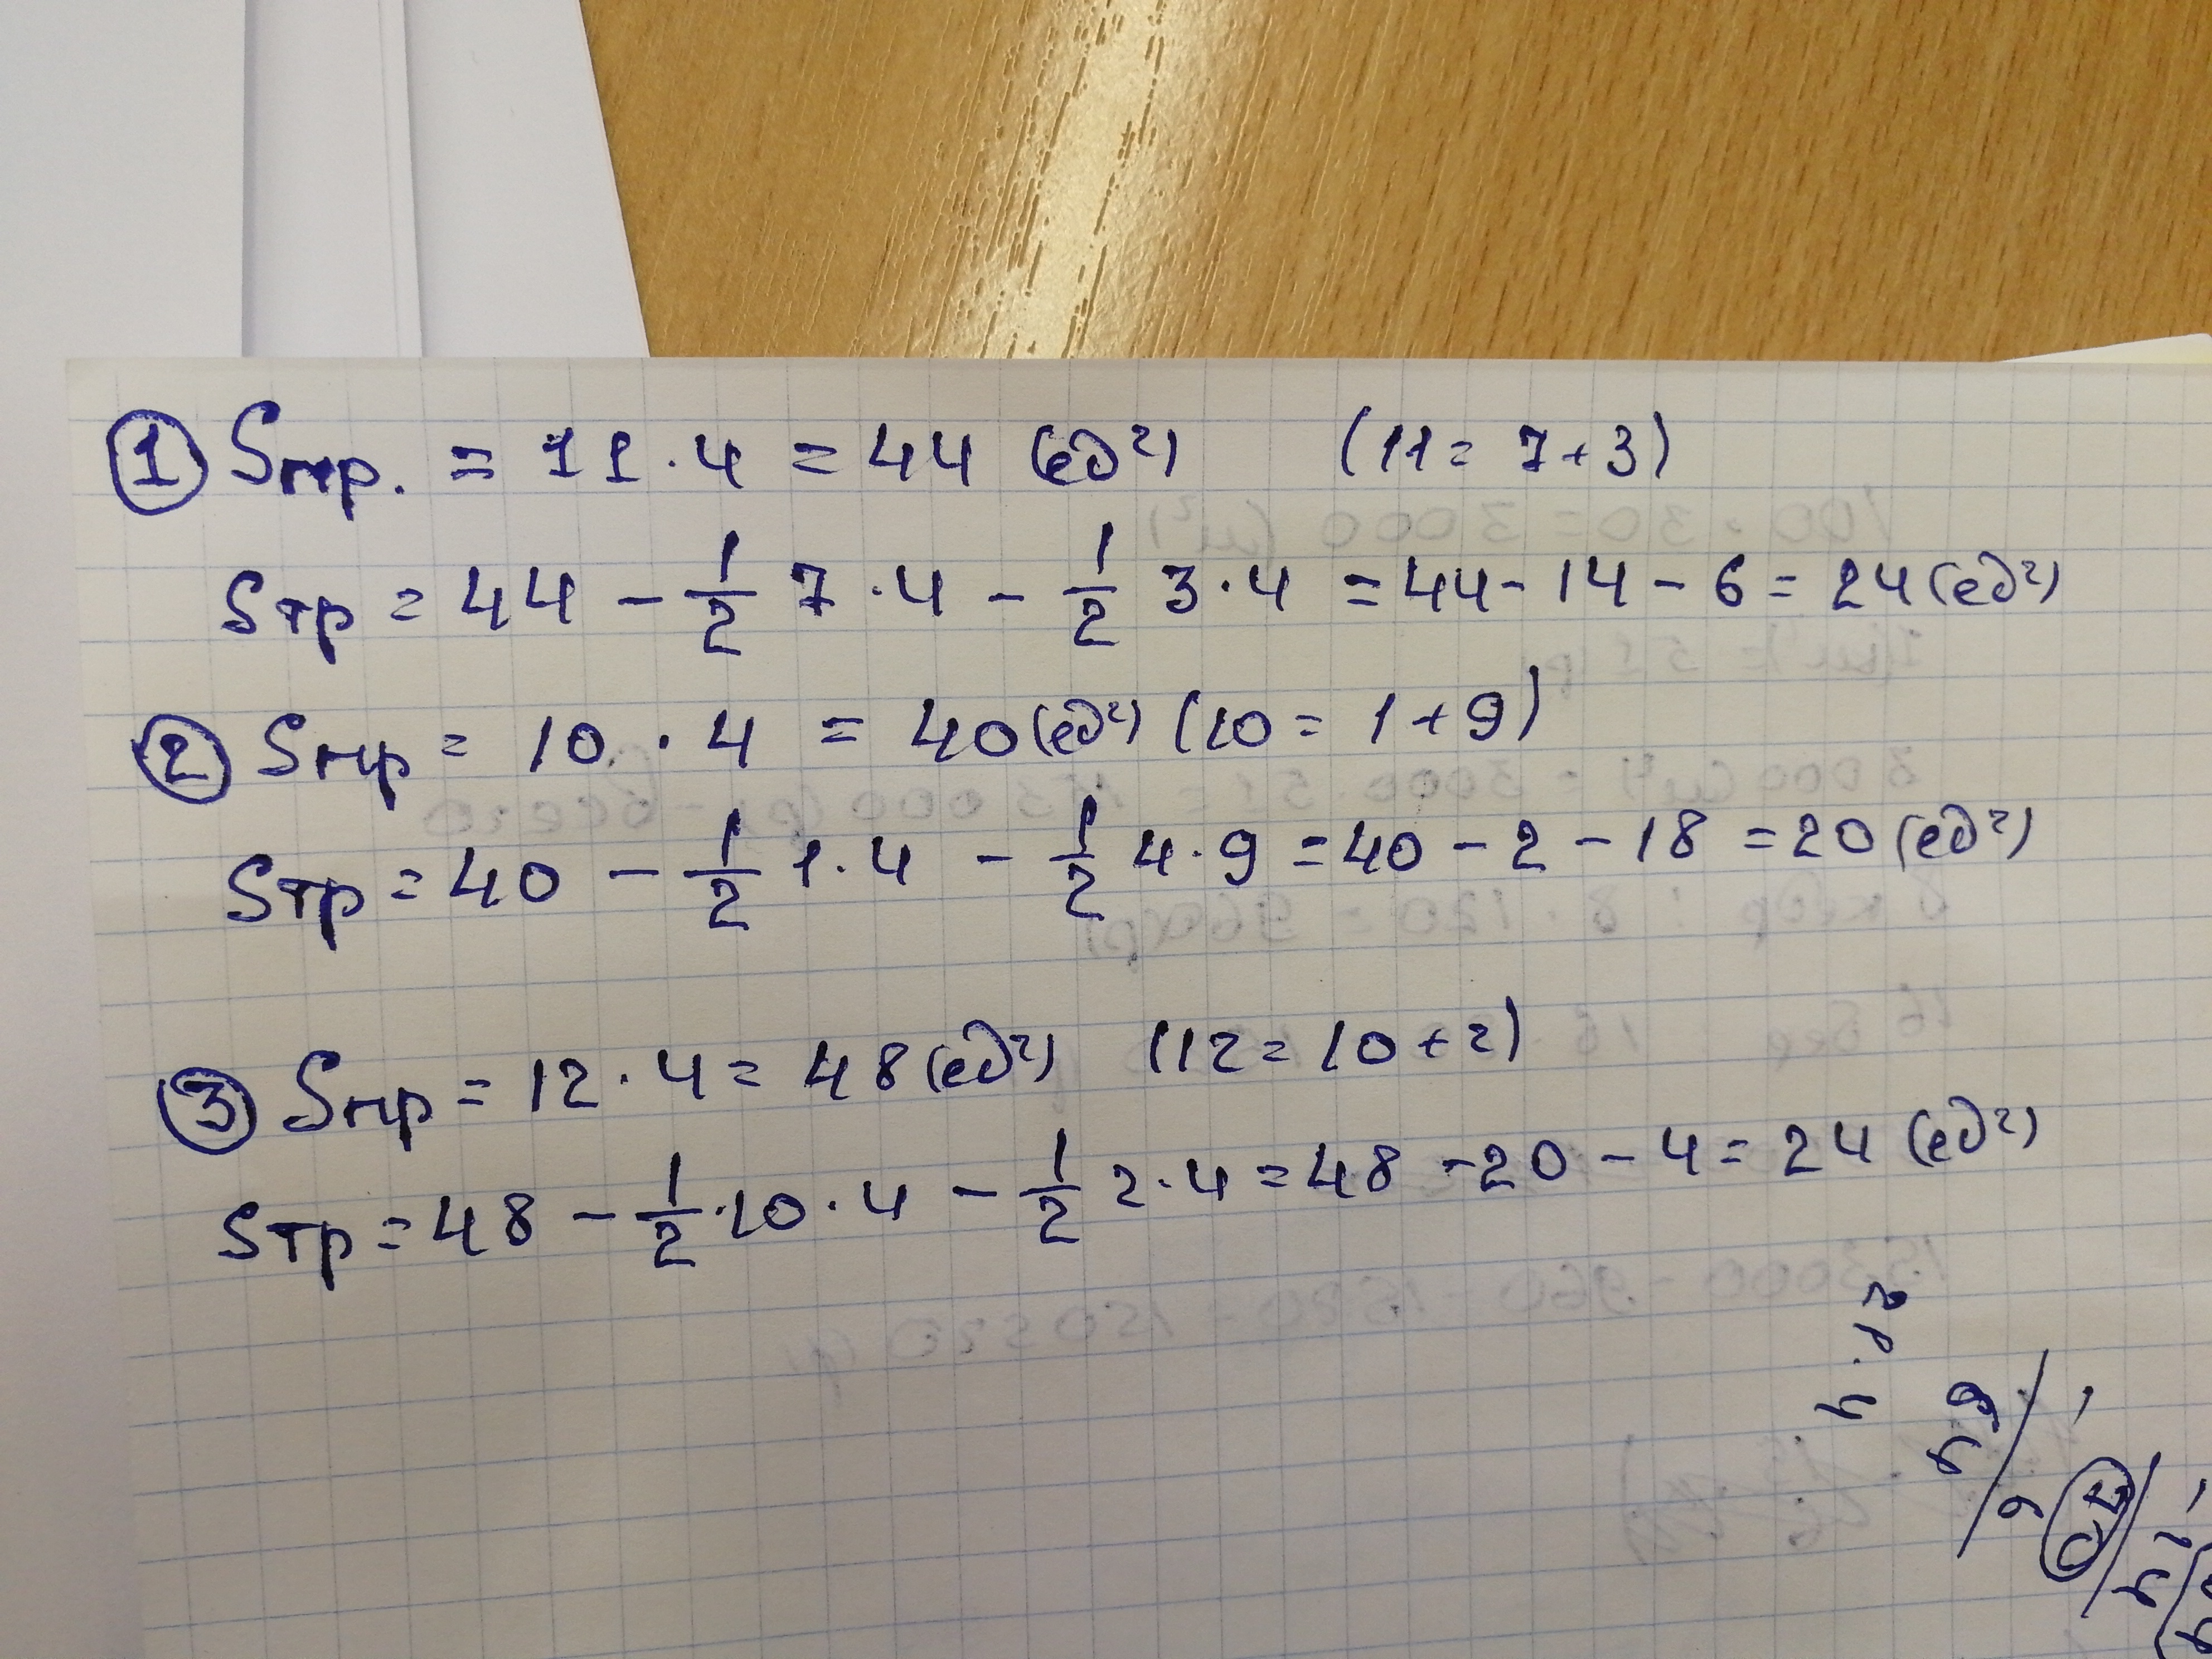 ① Sпр. = 11 · 4 = 44 (ед²) (11 = 7 + 3)
Sтр = 44 - 1/2 7 · 4 - 1/2 3 · 4 = 44 - 14 - 6 = 24 (ед²)
② Sпр = 10 · 4 = 40 (ед²) (10 = 1 + 9)
Sтр = 40 - 1/2 1 · 4 - 1/2 4 · 9 = 40 - 2 - 18 = 20 (ед²)
③ Sпр = 12 · 4 = 48 (ед²) (12 = 10 + 2)
Sтр = 48 - 1/2 · 10 · 4 - 1/2 2 · 4 = 48 - 20 - 4 = 24 (ед²)